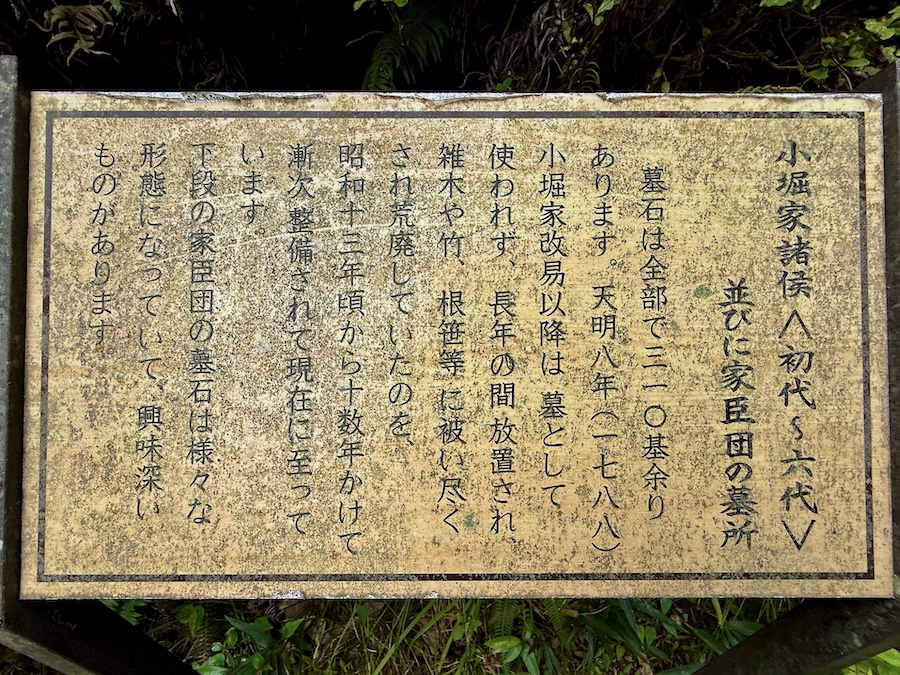 小堀家諸侯〈初代~六代〉
並びに家臣団の墓所
墓石は全部で三一〇基余り
あります。天明八年(一七八八)
小堀家改易以降は墓として
使われず、長年の間放置され、
雑木や竹、根笹等に被い尽く
され荒廃していたのを、
昭和十三年頃から十数年かけて
漸次整備されて現在に至って
います。
下段の家臣団の墓石は様々な
形態になっていて、興味深い
ものがあります